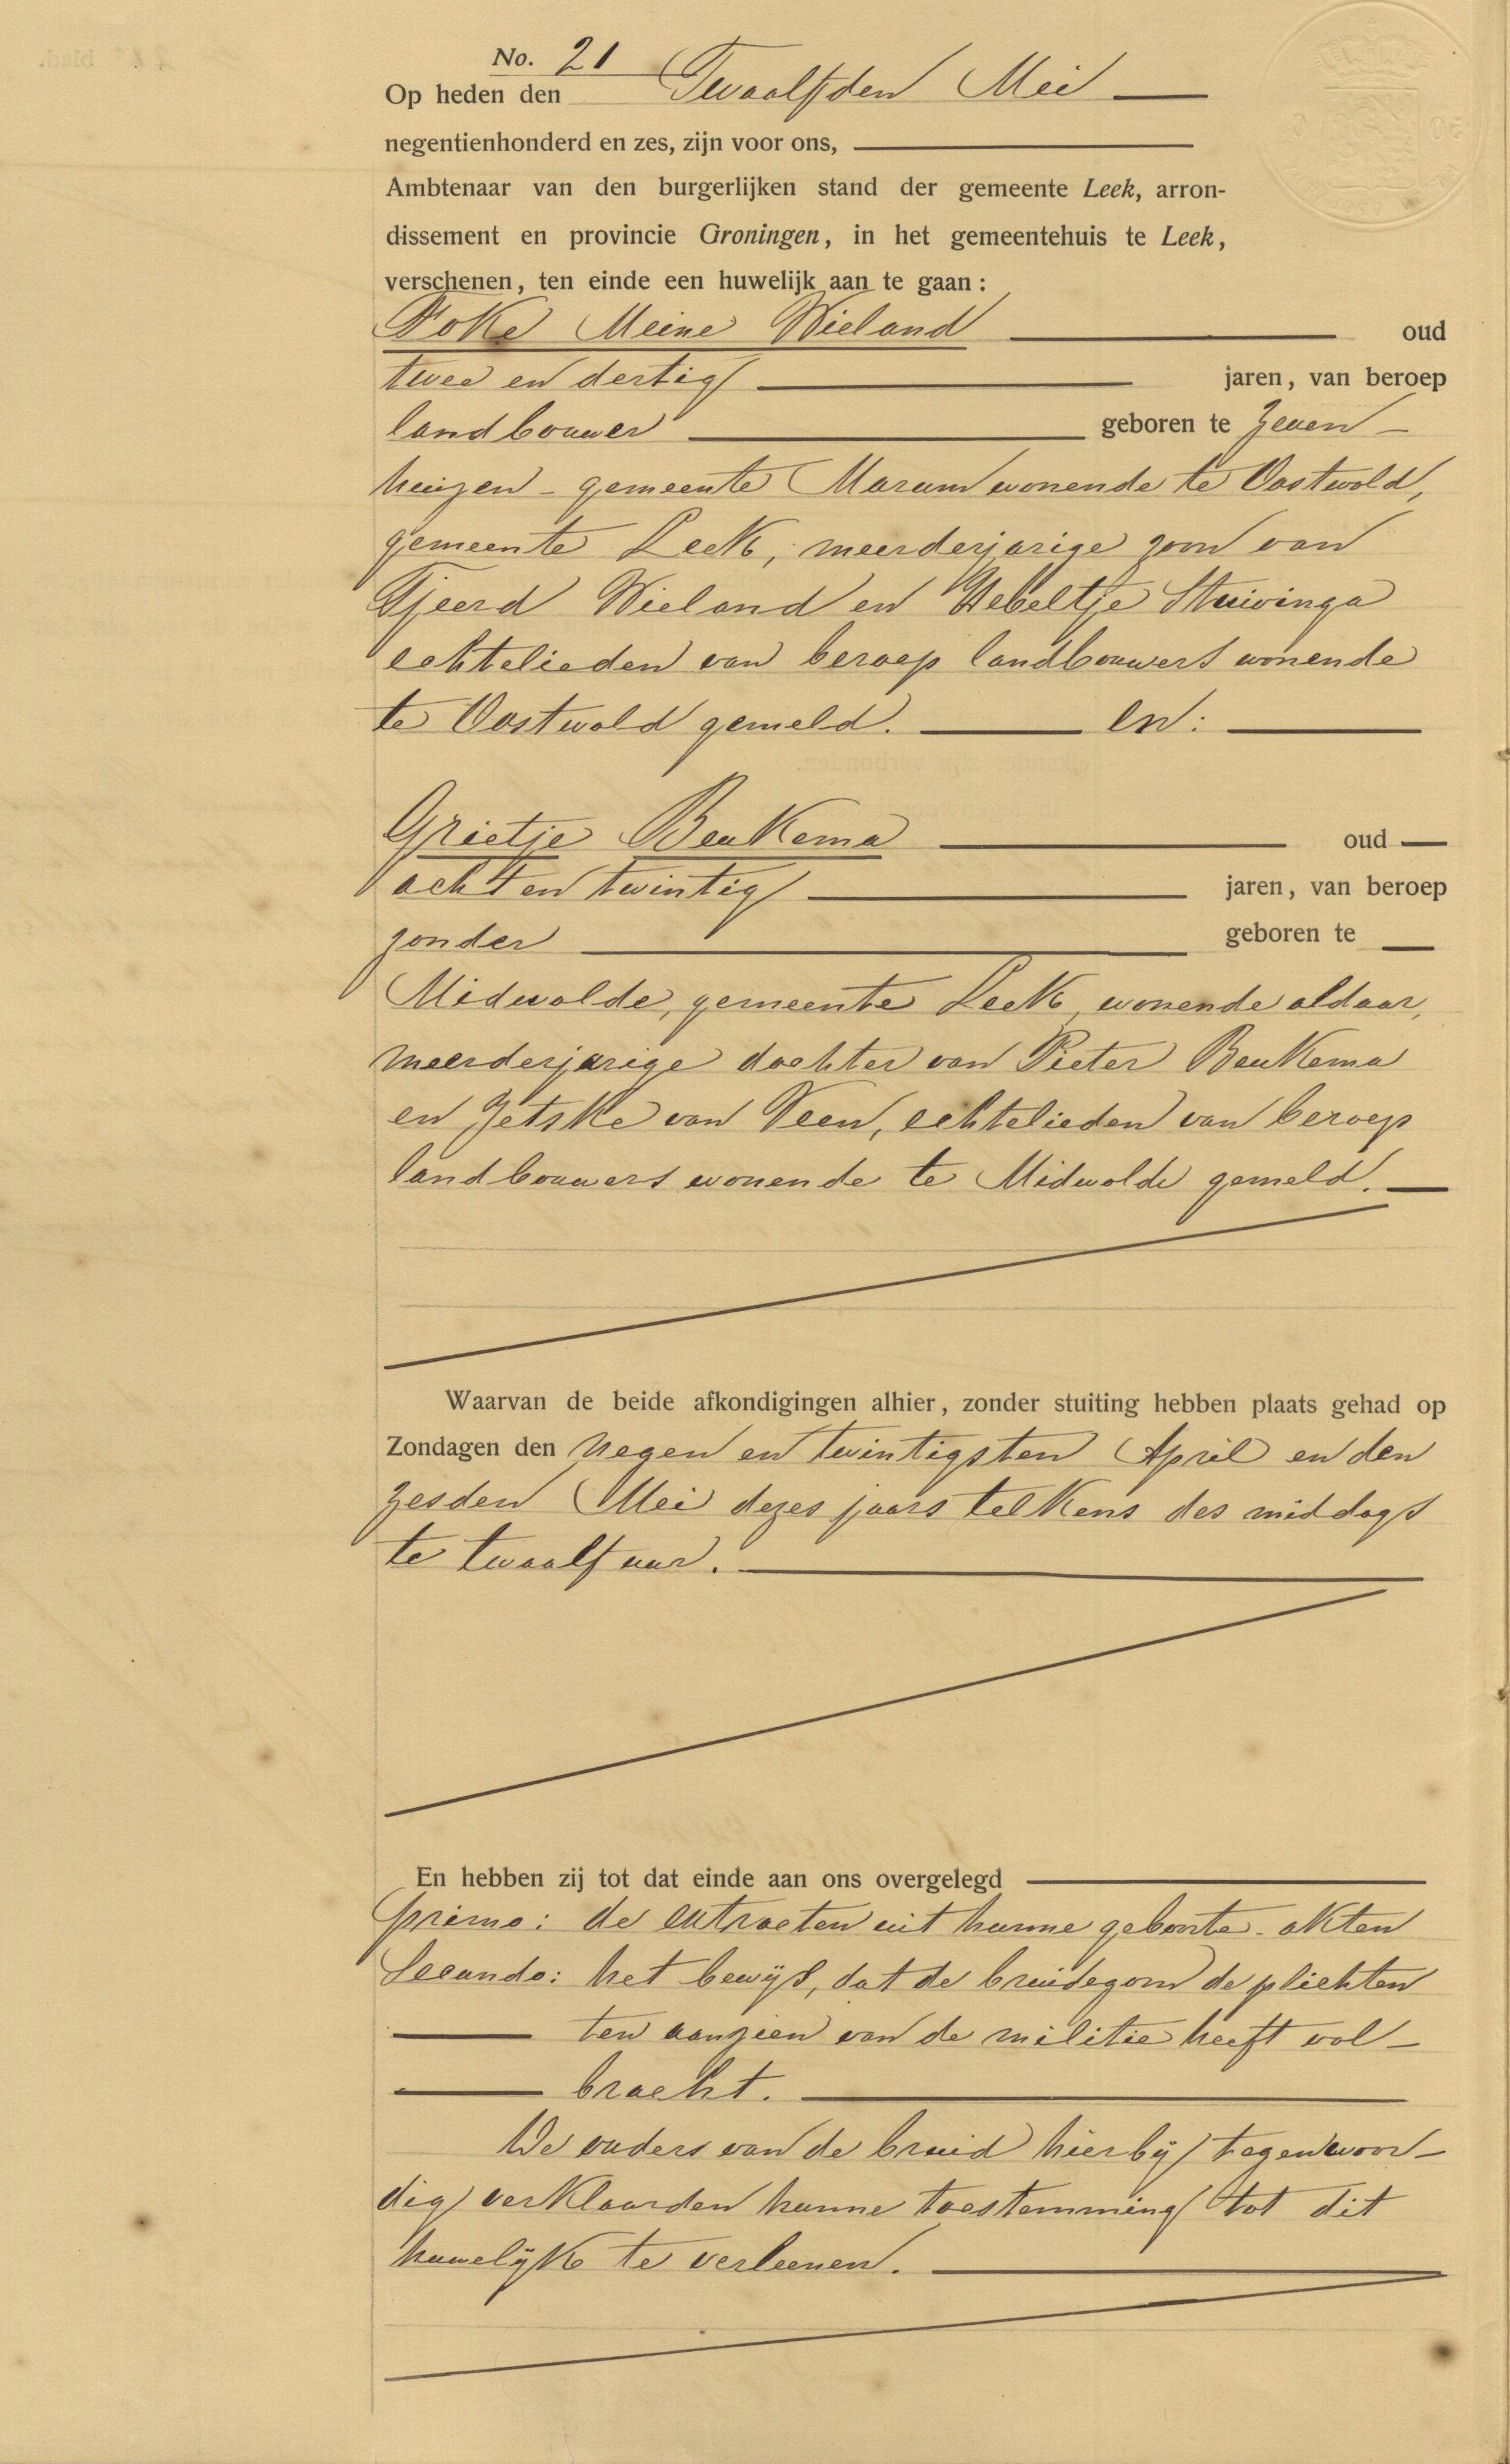 No. 21
Op heden den Twaalfden Mei
negentienhonderd en zes, zijn voor ons,
Ambtenaar van den burgerlijken stand der gemeente Leek, arron-
dissement en provincie Groningen, in het gemeentehuis te Leek,
verschenen, ten einde een huwelijk aan te gaan:
Foke Meine Wieland oud
twee en dertig jaren, van beroep
landbouwer geboren te Zeven-
huizen - gemeente Marum wonende te Oostwold,
gemeente Leek, meerderjarige zoon van
Tjeerd Wieland en Hebeltje Stuivinga
echtelieden van beroep landbouwers wonende
te Oostwold gemeld. en:
Grietje Beukema oud
acht en twintig jaren, van beroep
zonder geboren te
Midwolde, gemeente Leek, wonende aldaar,
meerderjarige dochter van Pieter Beukema
en Jetske van Veen, echtelieden van beroep
landbouwers wonende te Midwolde gemeld.
Waarvan de beide afkondigingen alhier, zonder stuiting hebben plaats gehad op
Zondagen den negen en twintigsten April en den
zesden Mei dezes jaars telkens des middags
te twaalf uur.
En hebben zij tot dat einde aan ons overgelegd
primo: de extracten uit hunne geboorte-akten
Secundo: het bewijs, dat de bruidegom de plichten
ten aanzien van de militie heeft vol-
bracht.
De ouders van de bruid hierbij tegenwoor-
dig verklaarden hunne toestemming tot dit
huwelijk te verleenen.